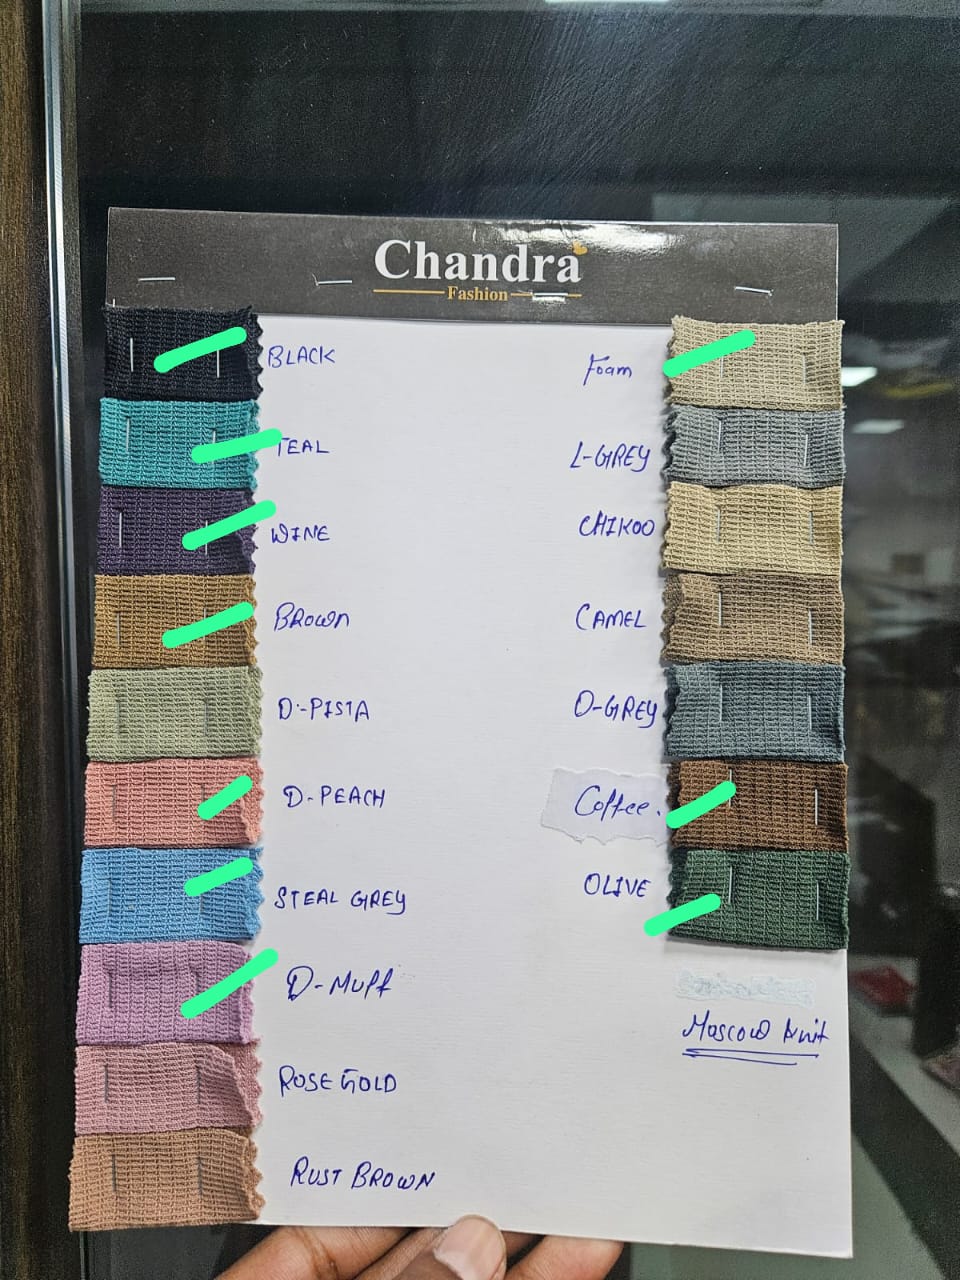 Chandra
Fashion
BLACK
TEAL
WINE
BROWN
D-PISTA
D-PEACH
STEAL GREY
D-Muff
ROSE GOLD
RUST BROWN
Foam
L-GREY
CHIKOO
CAMEL
D-GREY
Coffee.
OLIVE
Moscow Knit